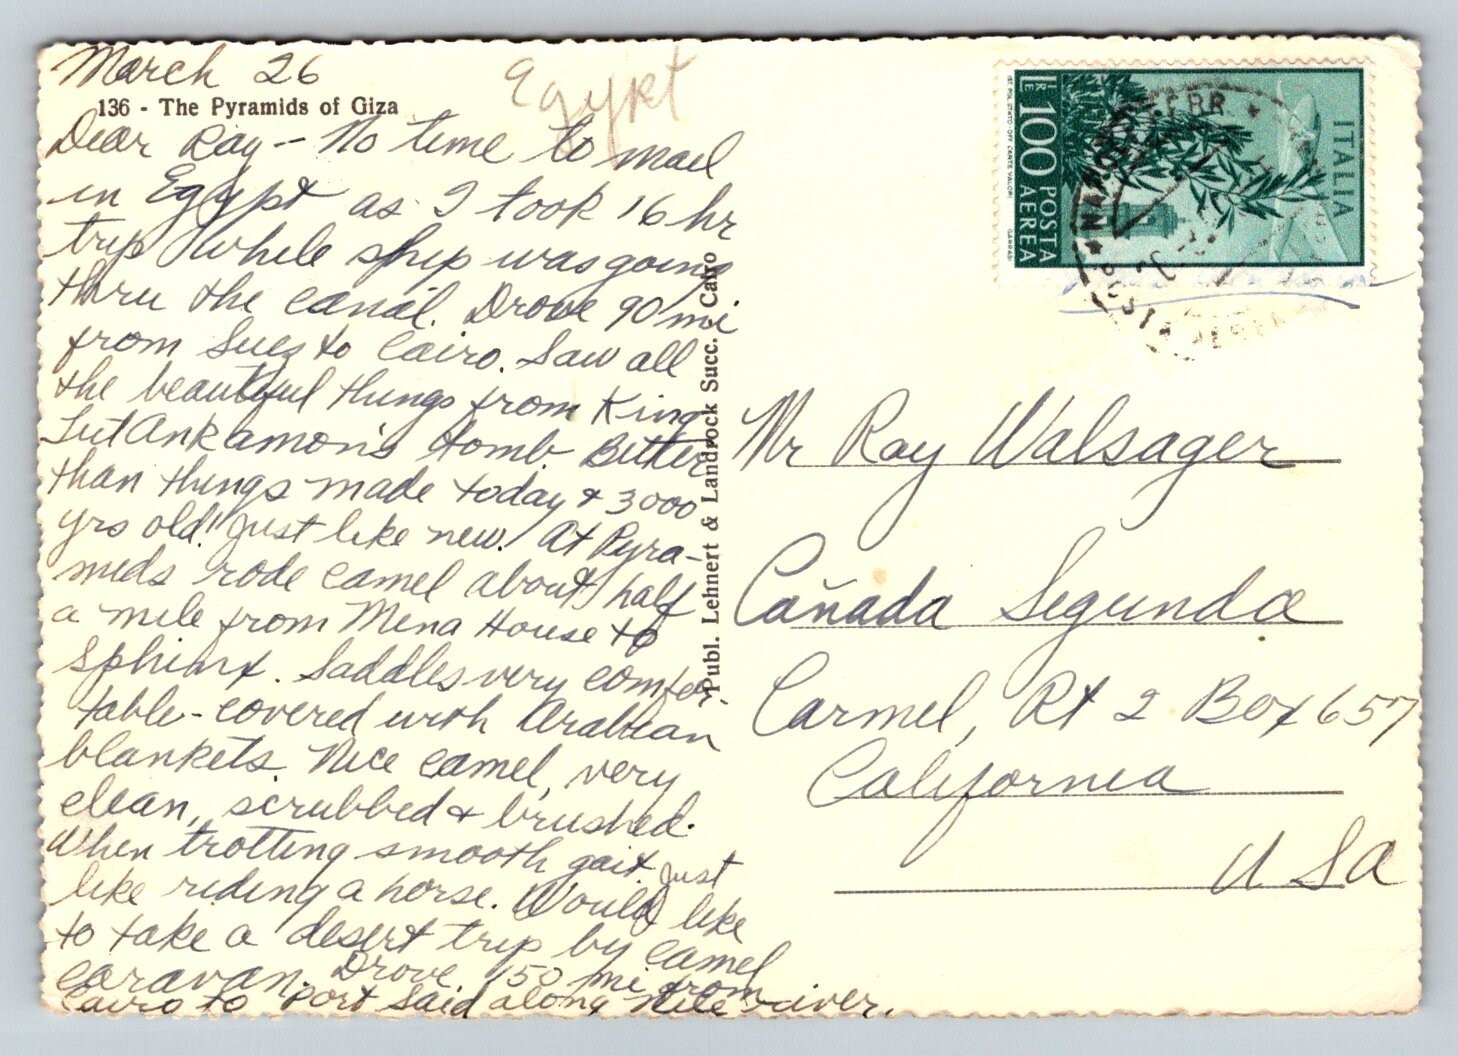 March 26
Egypt
136 - The Pyramids of Giza
Dear Ray -- No time to mail
in Egypt as I took 16 hr
trip while ship was going
thru the canal. Drove 90 mi
from Suez to Cairo. Saw all
the beautiful things from King
TutAnkamon's tomb. Better
than things made today & 3000
yrs old! Just like new. At Pyra-
mids rode camel about half
a mile from Mena House to
Sphinx. Saddles very comfor
table - covered with Arabian
blankets. Nice camel, very
clean, scrubbed & brushed.
When trotting smooth gait just
like riding a horse. Would like
to take a desert trip by camel
caravan. Drove 150 mi from
Cairo to Port Said along Nile river.
Publ. Lehnert & Landrock Succ. Cairo
ITALIA
POSTA AEREA
LRE 100
Mr Ray Walsager
Cañada Segunda
Carmel, Rt 2 Box 657
California
USA